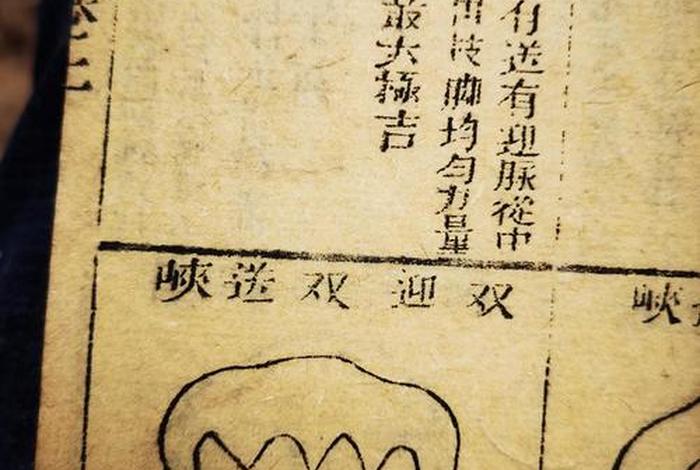 有送有迎脈從中
出枝脚均匀力量
最大極吉
双迎双送峽
峽